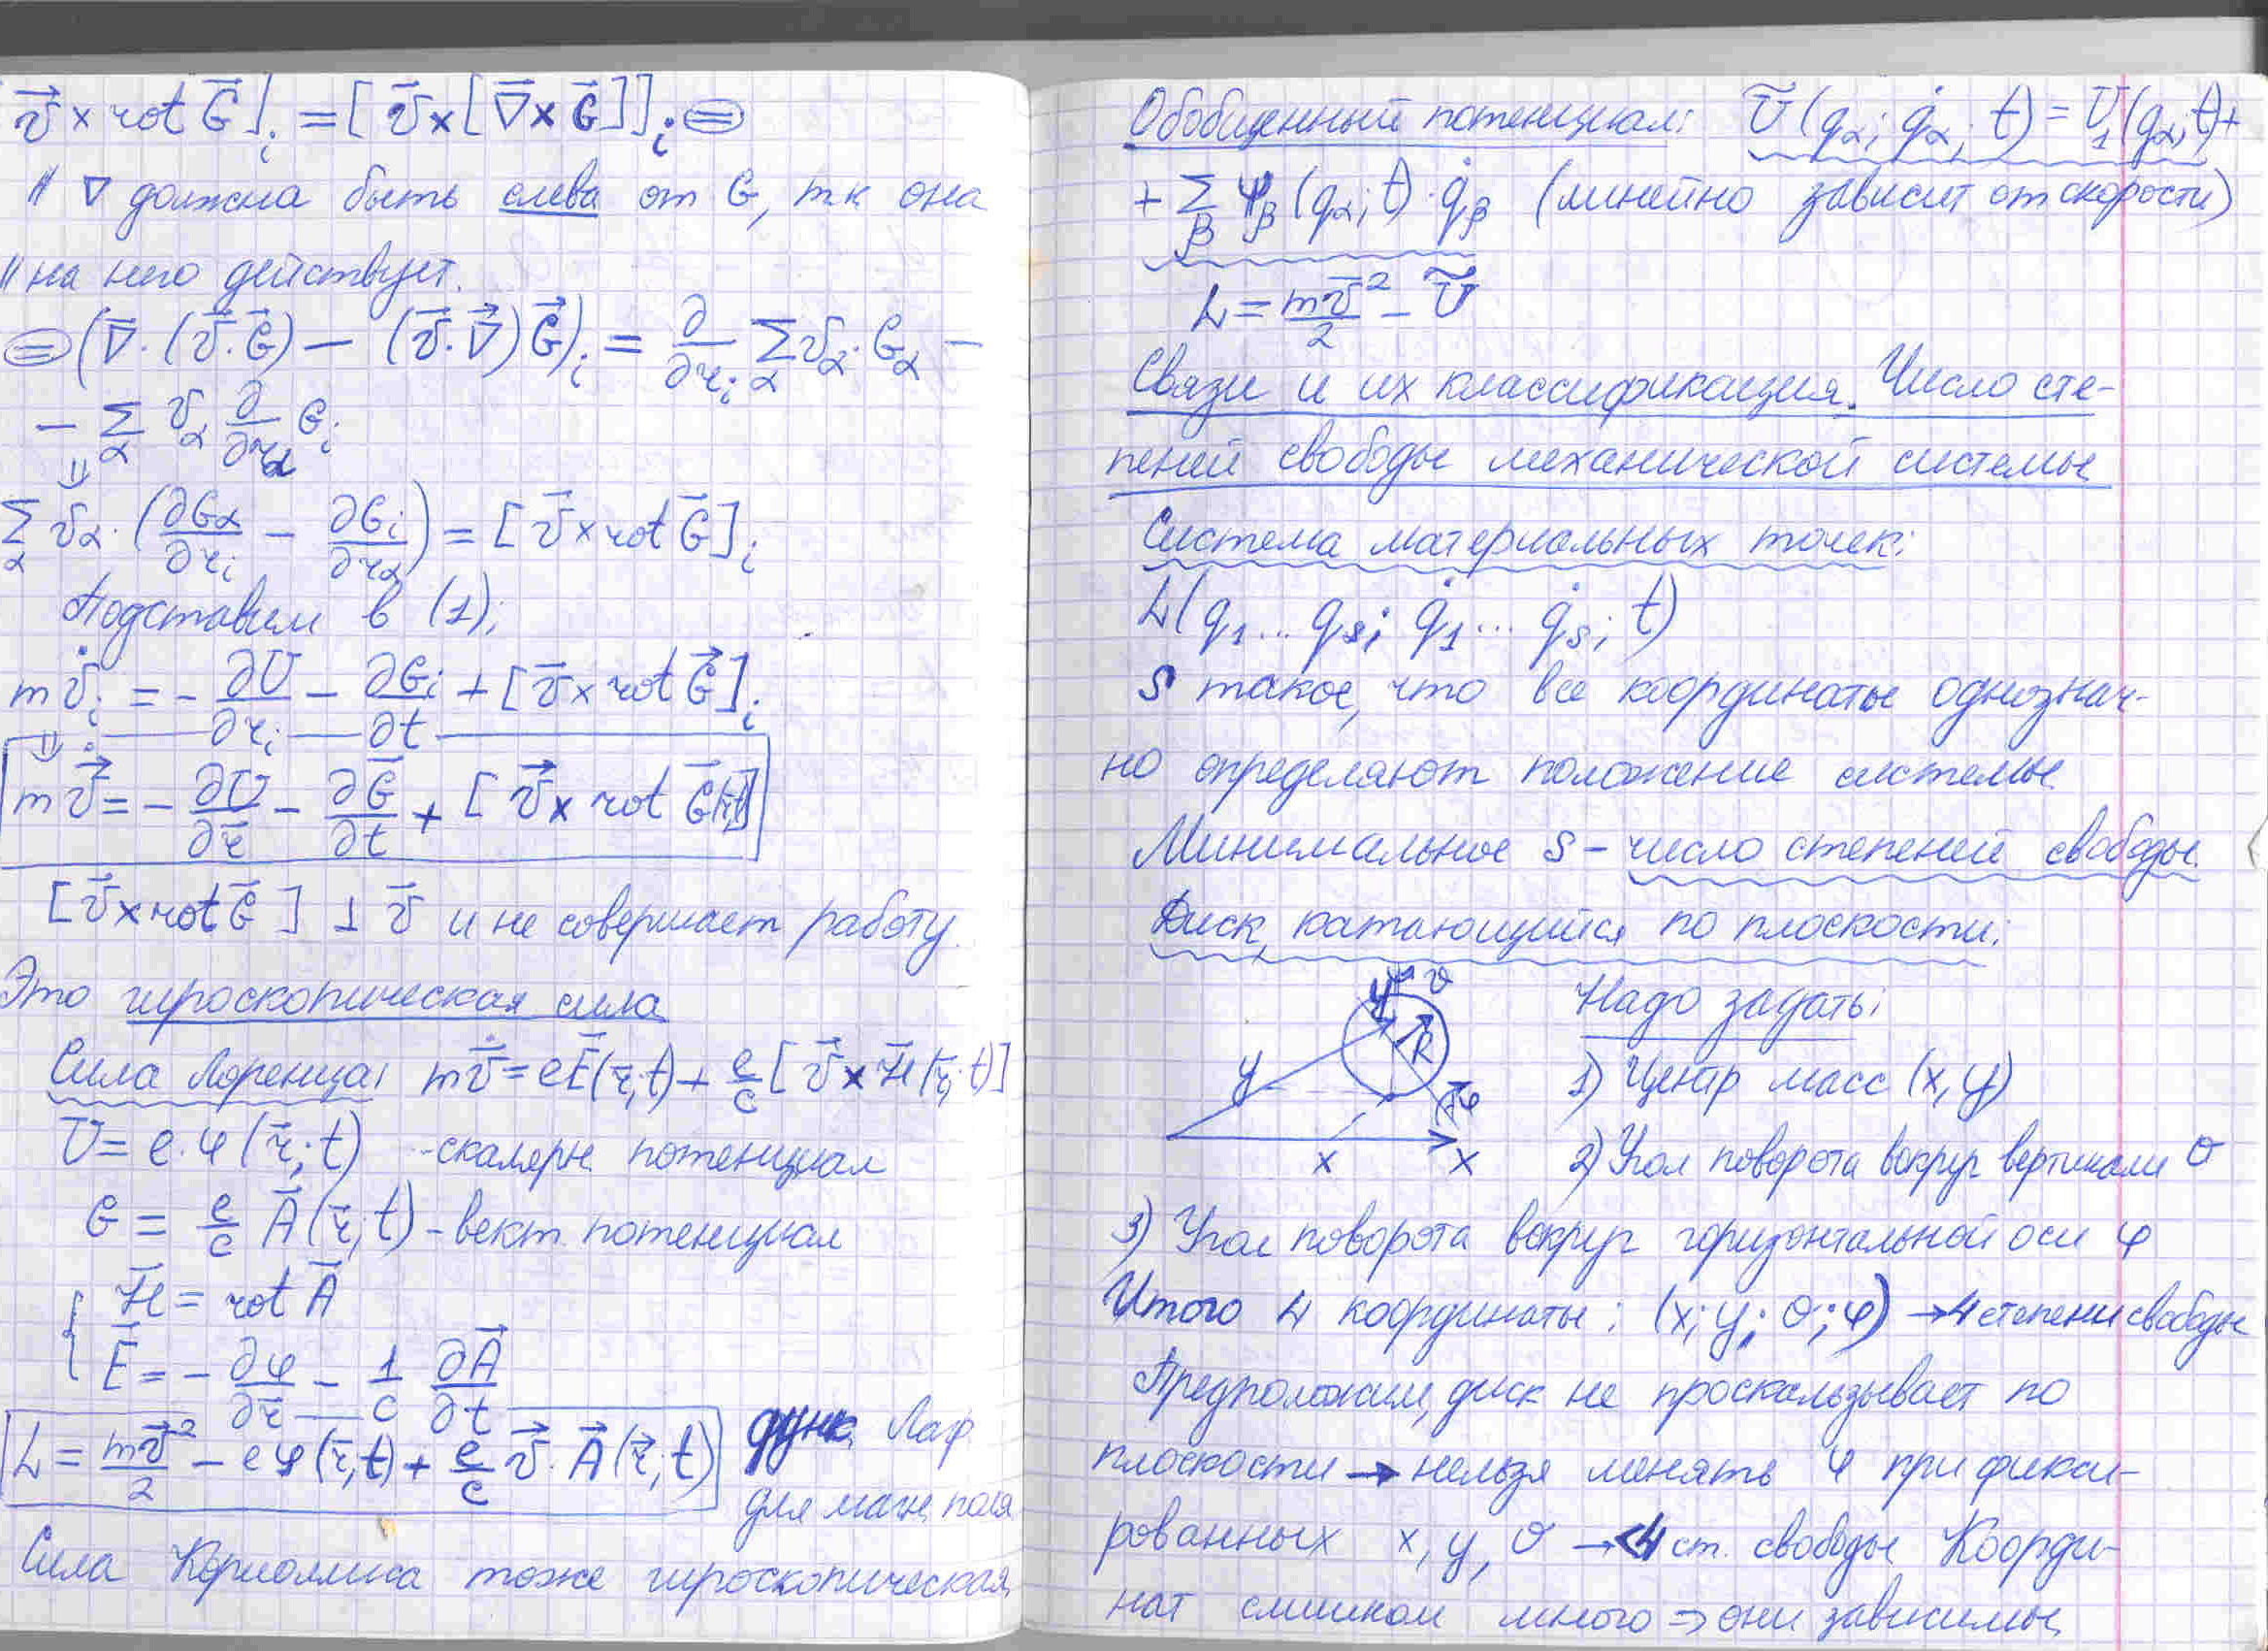 [v⃗ × rot G⃗]ᵢ = [v⃗ × [∇⃗ × G⃗]]ᵢ ⊜
// ∇ должна быть слева от G, т к она
// на него действует.
⊜ (∇⃗ · (v⃗ · G⃗) − (v⃗ · ∇⃗) G⃗)ᵢ = ∂/∂rᵢ Σ_α v_α · G_α −
− Σ_α v_α ∂/∂r_α Gᵢ
⇓
Σ_α v_α · (∂G_α/∂rᵢ − ∂Gᵢ/∂r_α) = [v⃗ × rot G⃗]ᵢ
Подставим в (1):
m v̇ᵢ = − ∂U/∂rᵢ − ∂Gᵢ/∂t + [v⃗ × rot G⃗]ᵢ
⇓
m v̇⃗ = − ∂U/∂r⃗ − ∂G⃗/∂t + [v⃗ × rot G⃗(r⃗,t)]
[v⃗ × rot G⃗] ⊥ v⃗ и не совершает работу.
Это гироскопическая сила
Сила Лоренца: m v̇⃗ = eE⃗(r⃗,t) + e/c [v⃗ × H⃗(r⃗,t)]
U = e·φ(r⃗;t) - скалярн. потенциал
G = e/c A⃗(r⃗;t) - вект. потенциал
{ H⃗ = rot A⃗
E⃗ = − ∂φ/∂r⃗ − 1/c ∂A⃗/∂t
L = mv⃗²/2 − eφ(r⃗,t) + e/c v⃗ · A⃗(r⃗;t) функ. Лагр
для магн. поля
Сила Кориолиса тоже гироскопическая
Обобщенный потенциал: Ũ(q_α; q̇_α; t) = U₁(q_α,t) +
+ Σ_β φ_β(q_α;t) · q̇_β (линейно зависит от скорости)
L = mv⃗²/2 − Ũ
Связи и их классификация. Число сте-
пеней свободы механической системы
Система материальных точек:
L(q₁... q_s; q̇₁... q̇_s; t)
S такое, что все координаты однознач-
но определяют положение системы.
Минимальное S – число степеней свободы.
Диск, катающийся по плоскости:
y θ
R
y
φ
x x
Надо задать:
1) Центр масс (x, y)
2) Угол поворота вокруг вертикали θ
3) Угол поворота вокруг горизонтальной оси φ
Итого 4 координаты: (x; y; θ; φ) → 4 степени свободы
Предположим, диск не проскальзывает по
плоскости → нельзя менять φ при фикси-
рованных x, y, θ → <4 ст. свободы Коорди-
нат слишком много ⇒ они зависимы